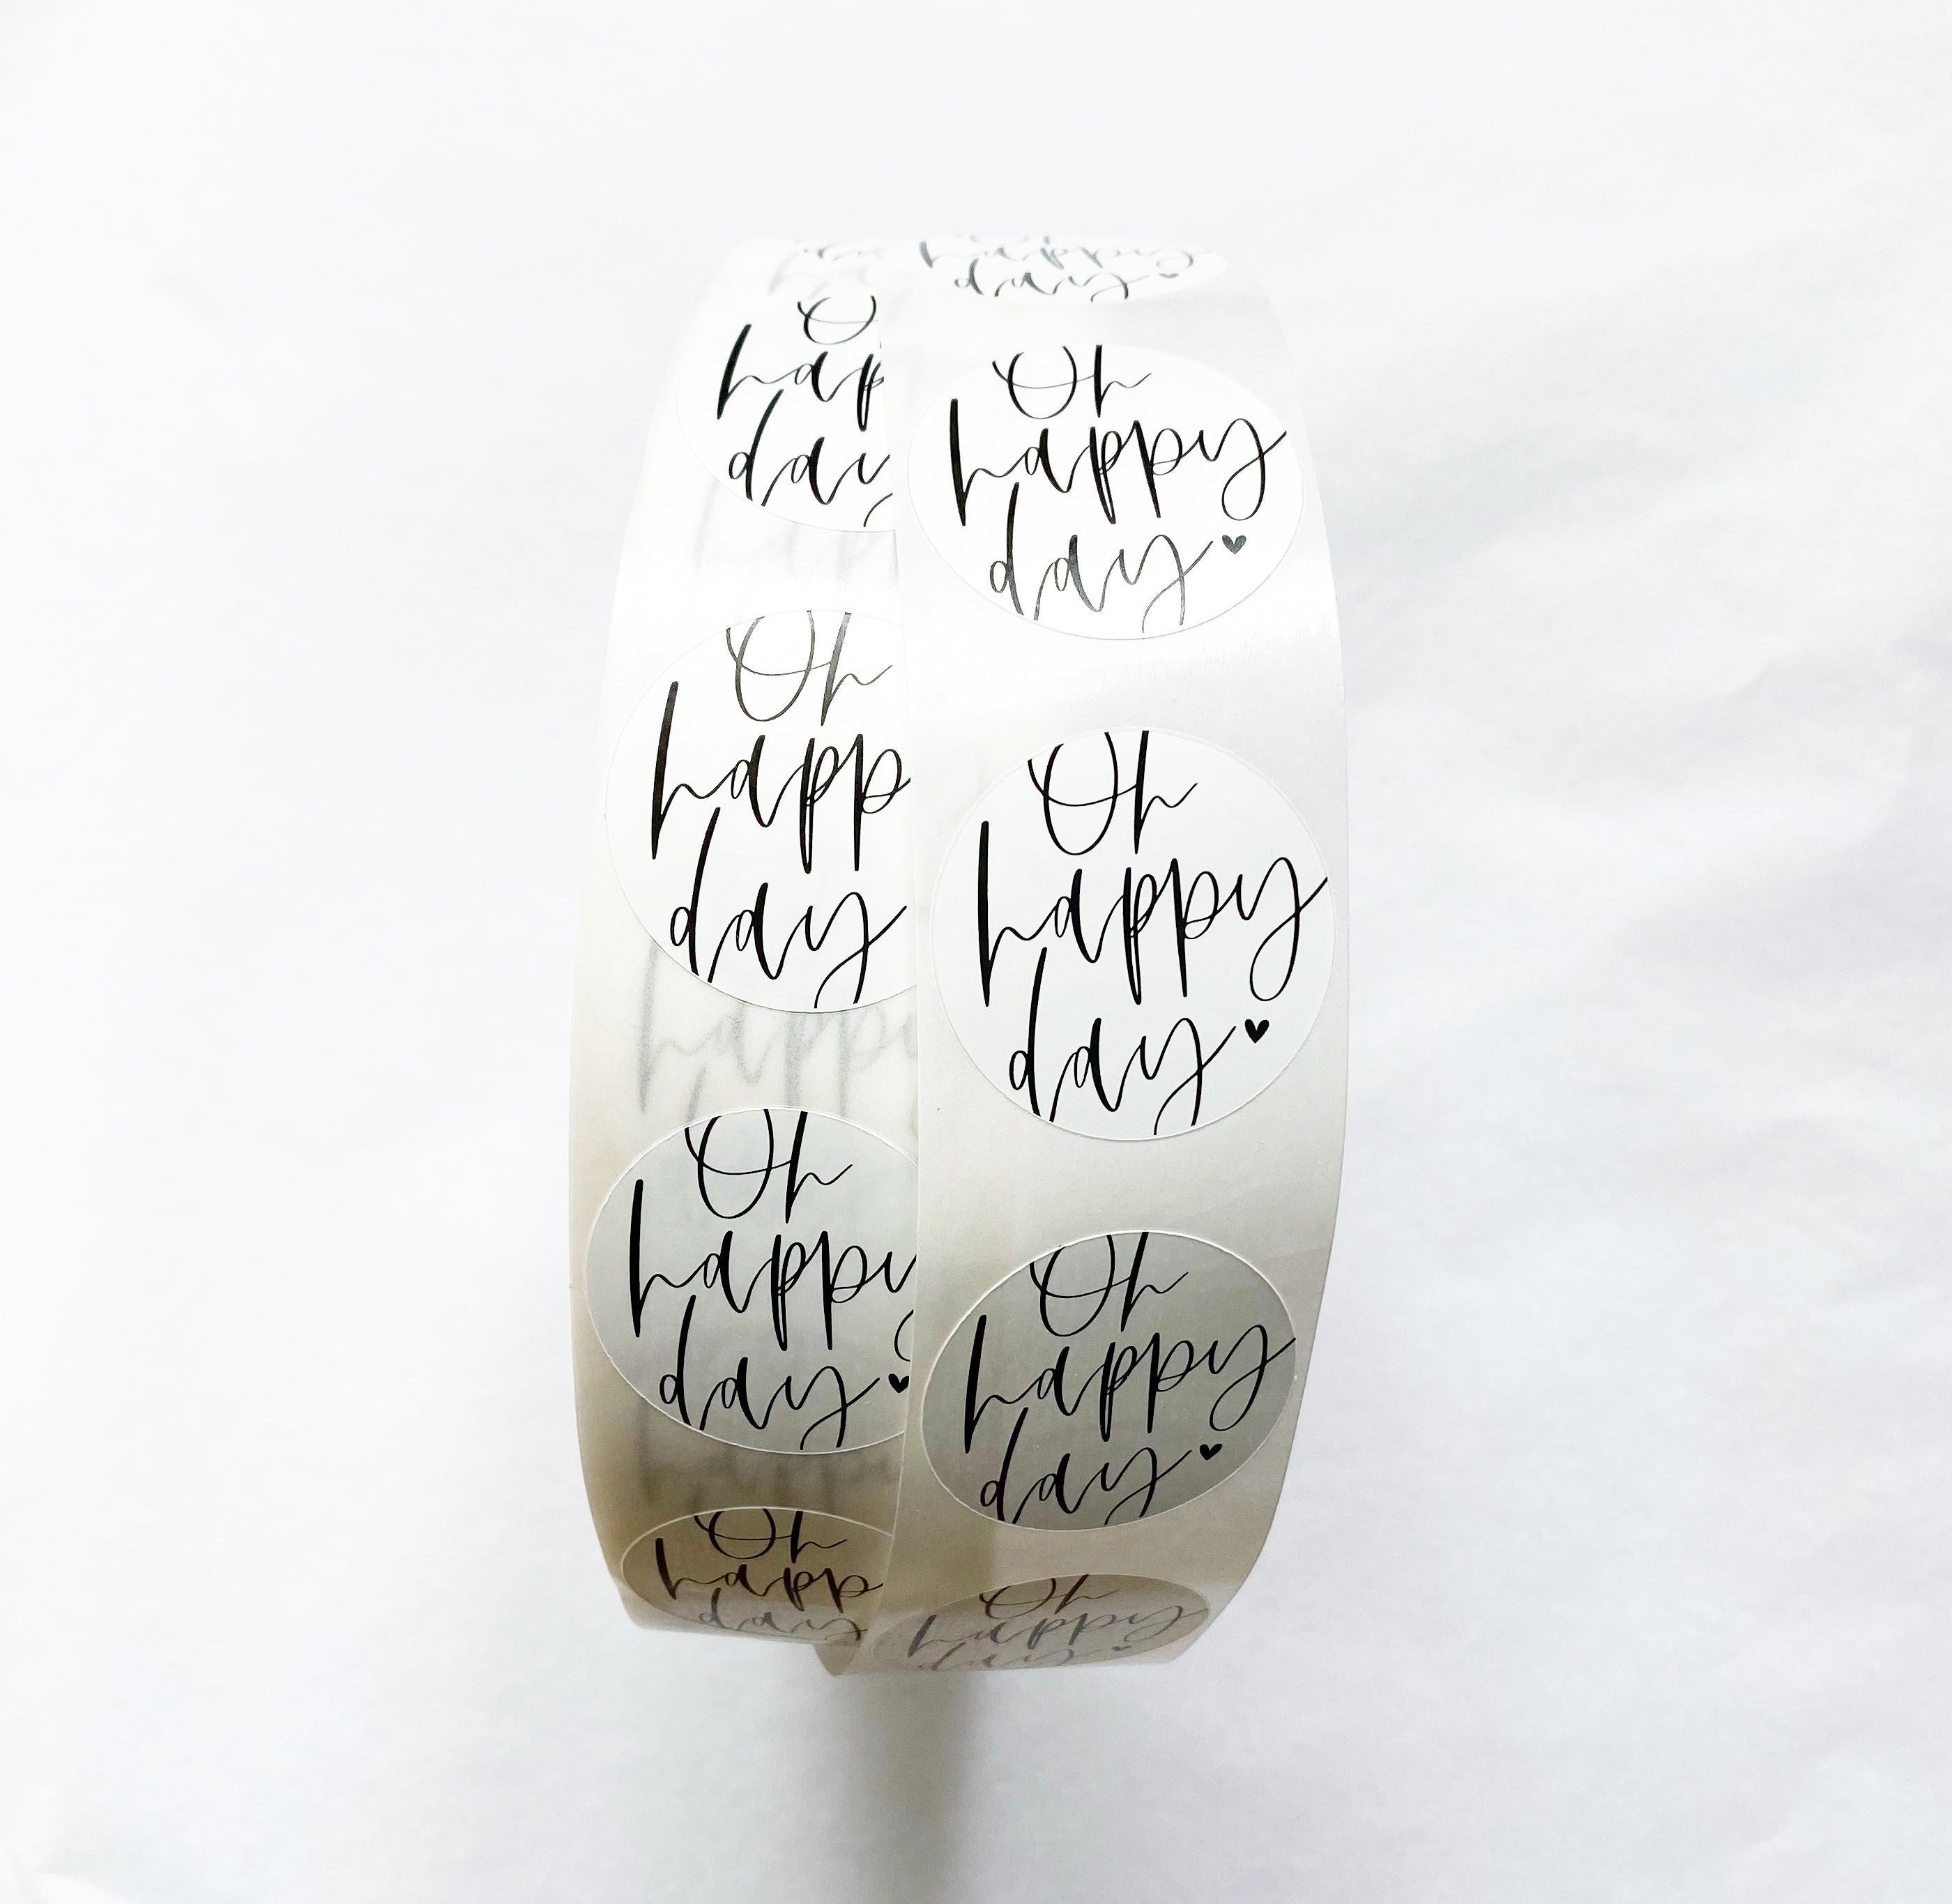 happy
day
O
hap
day
Oh
happ
day
happy
Oh
happy
day
Oh
happ
day
Oh
happy
day
Oh
happy
day
Oh
happy
day
Oh
happy
day